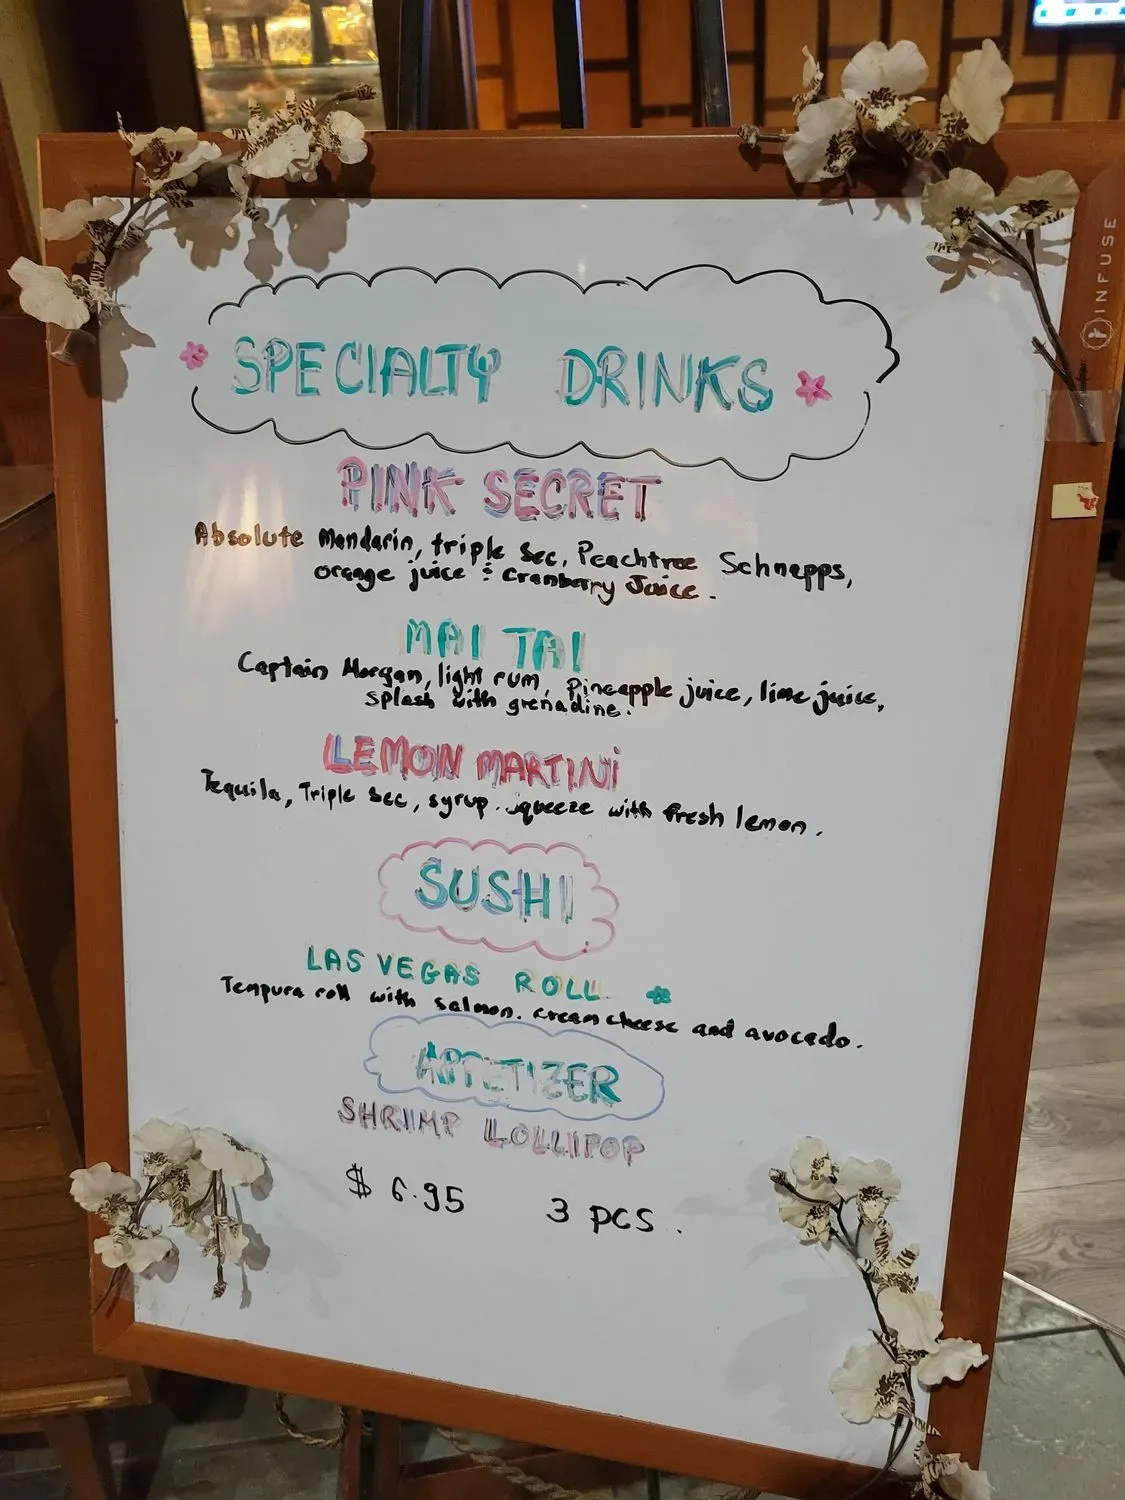 SPECIALTY DRINKS
PINK SECRET
Absolute Mandarin, triple Sec, Peachtree Schnapps,
orange juice & cranberry Juice.
MAI TAI
Captain Morgan, light rum, Pineapple juice, lime juice,
splash with grenadine.
LEMON MARTINI
Tequila, Triple Sec, syrup. squeeze with fresh lemon.
SUSHI
LAS VEGAS ROLL
Tempura roll with salmon. cream cheese and avocado.
APPETIZER
SHRIMP LOLLIPOP
$ 6.95 3 pcs.
INFUSE